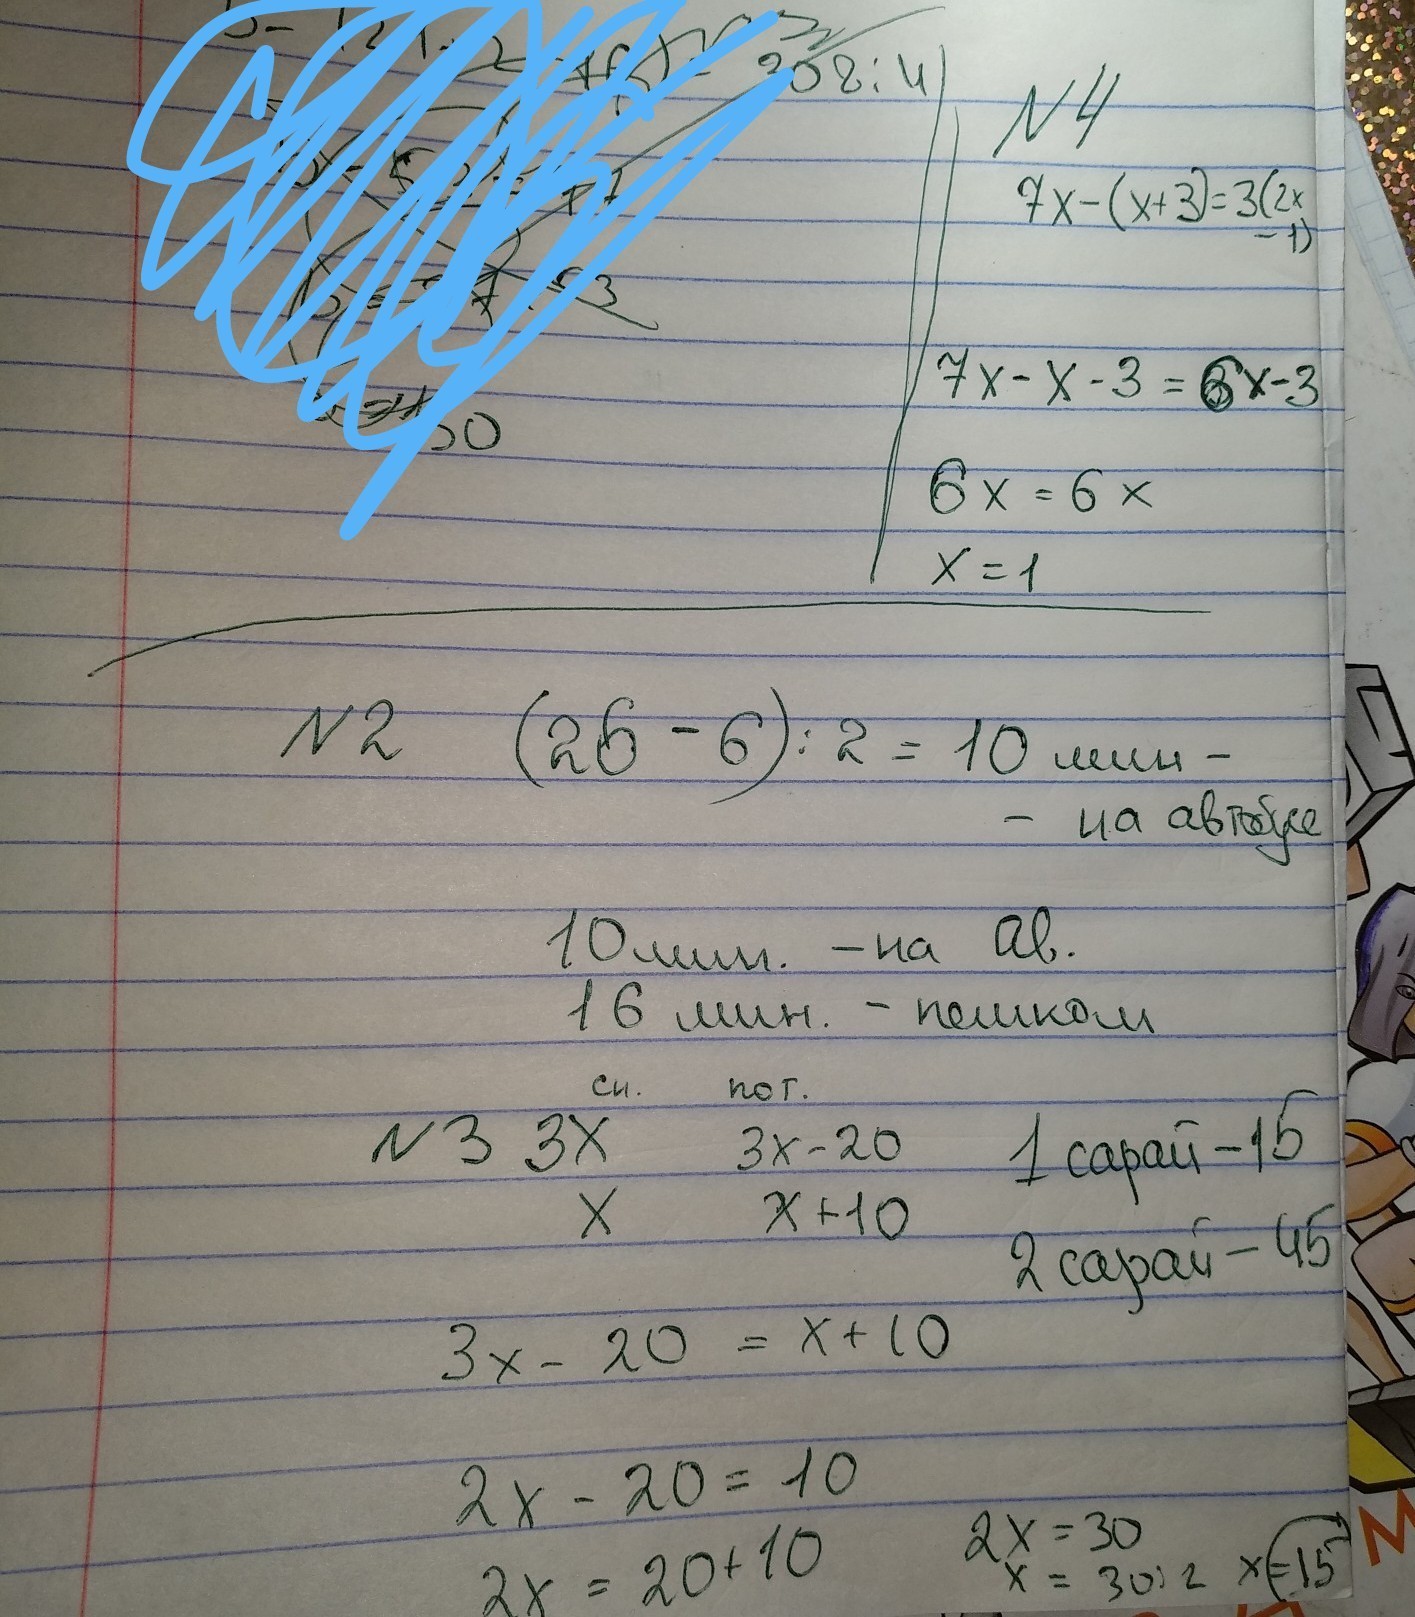 308:4
30
N4
7x-(x+3)=3(2x
-1)
7x-x-3=6x-3
6x=6x
x=1
N2 (26-6):2=10 мин-
- на автобусе
10 мин. - на ав.
16 мин. - пешком
сн. пот.
N3 3x 3x-20 1 сарай-15
x x+10
2 сарай-45
3x-20=x+10
2x-20=10
2x=20+10
2x=30
x=30:2 x=15